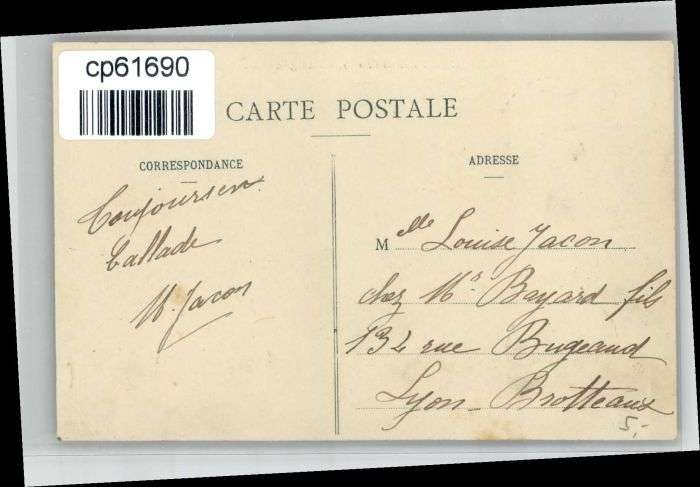 cp61690
CARTE POSTALE
CORRESPONDANCE
Toujours en
ballade
M. Jacon
ADRESSE
Melle Louise Jacon
chez Mrs Bayard fils
132 rue Bugeaud
Lyon - Brotteaux
5,-